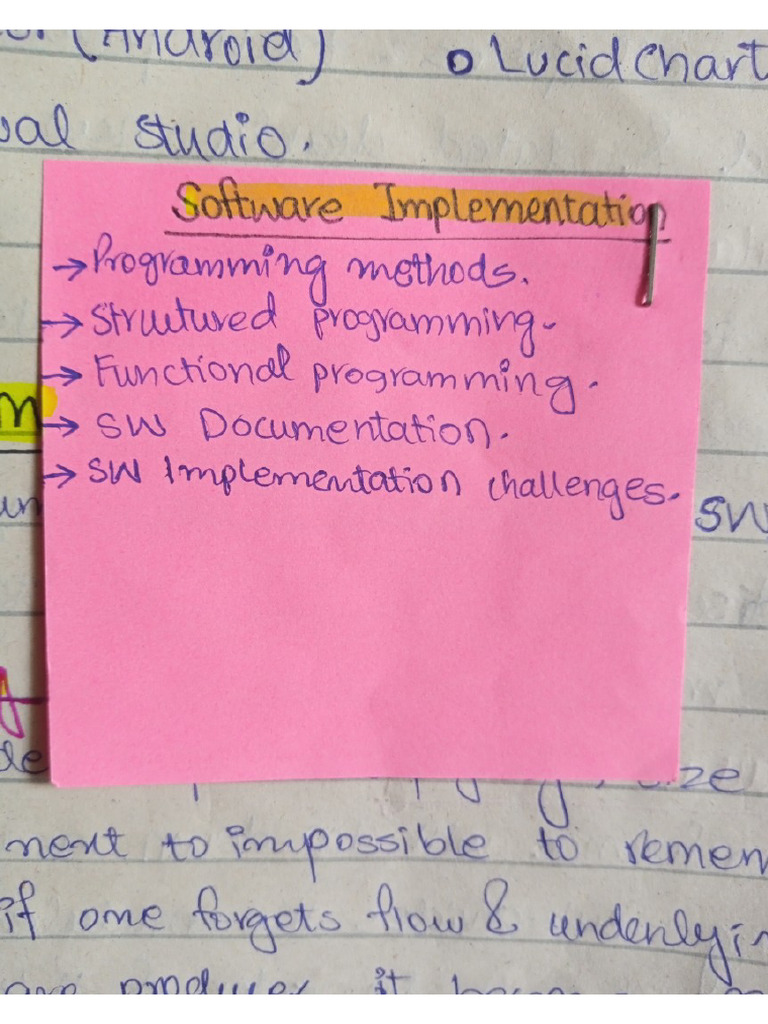 (Android) o Lucid Chart
studio.
Software Implementation
→ Programming methods.
→ Structured programming.
→ Functional programming.
→ SW Documentation.
→ SW Implementation challenges.
SW
ze
next to impossible to remem
if one forgets flow & underlyin